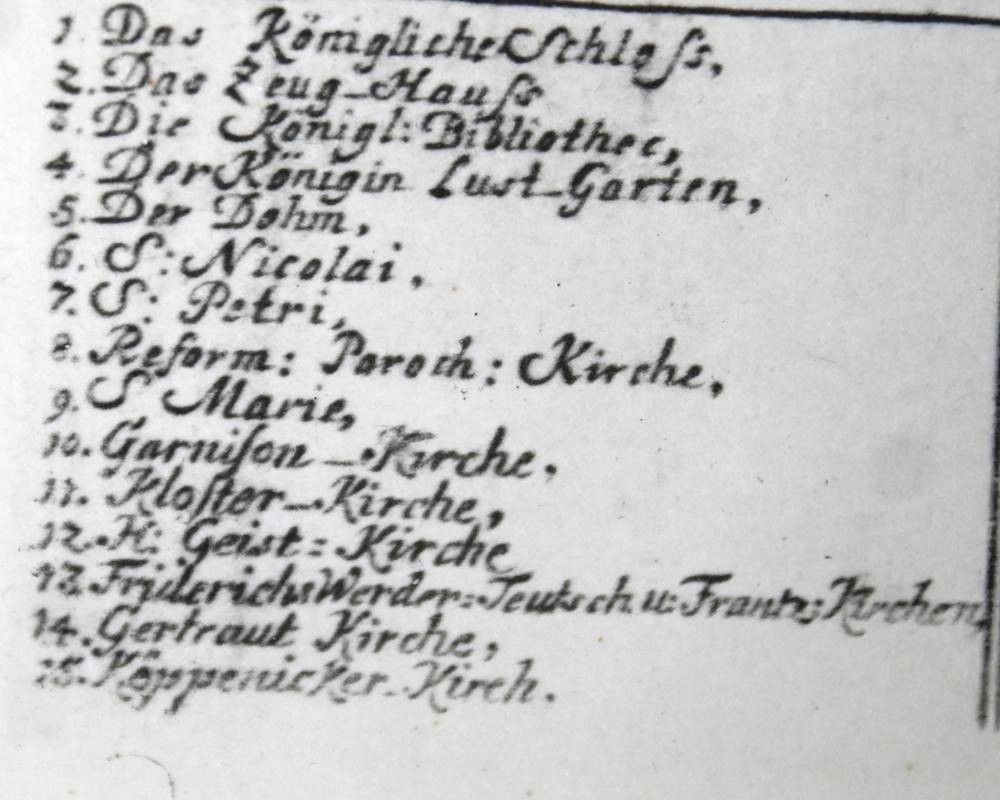 1. Das Königliche Schloſs,
2. Das Zeug-Hauſs
3. Die Königl: Bibliothec,
4. Der Königin Lust-Garten,
5. Der Dohm,
6. S: Nicolai,
7. S: Petri,
8. Reform: Paroch: Kirche,
9. S Marie,
10. Garniſon-Kirche,
11. Kloſter-Kirche,
12. H: Geist: Kirche
13. FriderichsWerder: Teutsch u: Frantz: Kirchen,
14. Gertraut Kirche,
15. Köppenicker-Kirch.